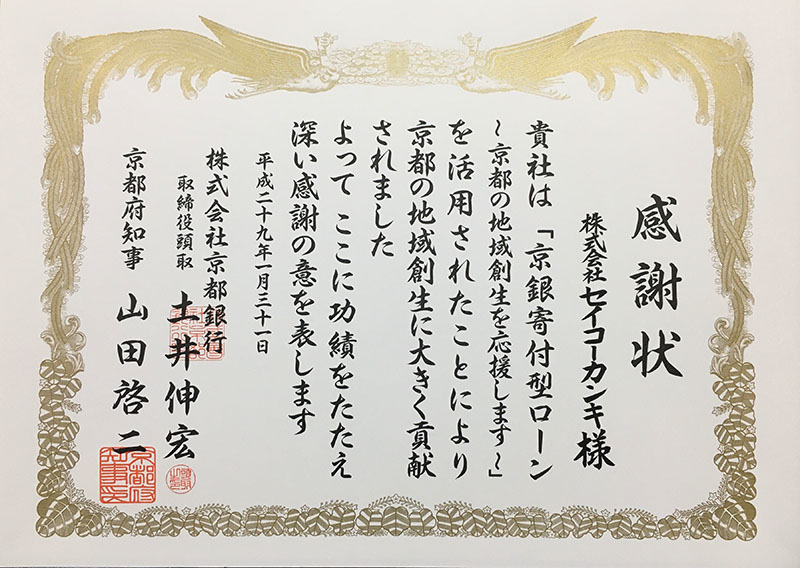 感謝状
株式会社セイコーカンキ様
貴社は「京銀寄付型ローン
～京都の地域創生を応援します～」
を活用されたことにより
京都の地域創生に大きく貢献
されました
よって ここに功績をたたえ
深い感謝の意を表します
平成二十九年一月三十一日
株式会社京都銀行
取締役頭取 土井伸宏
京都府知事 山田啓二
京都府
知事印